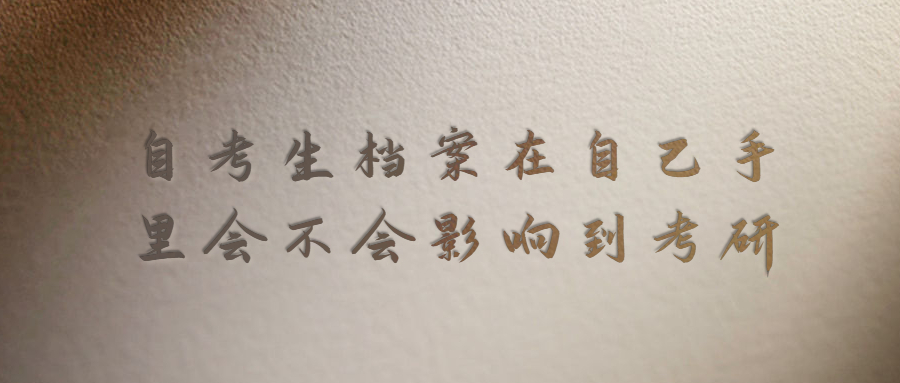 自考生档案在自己手
里会不会影响到考研